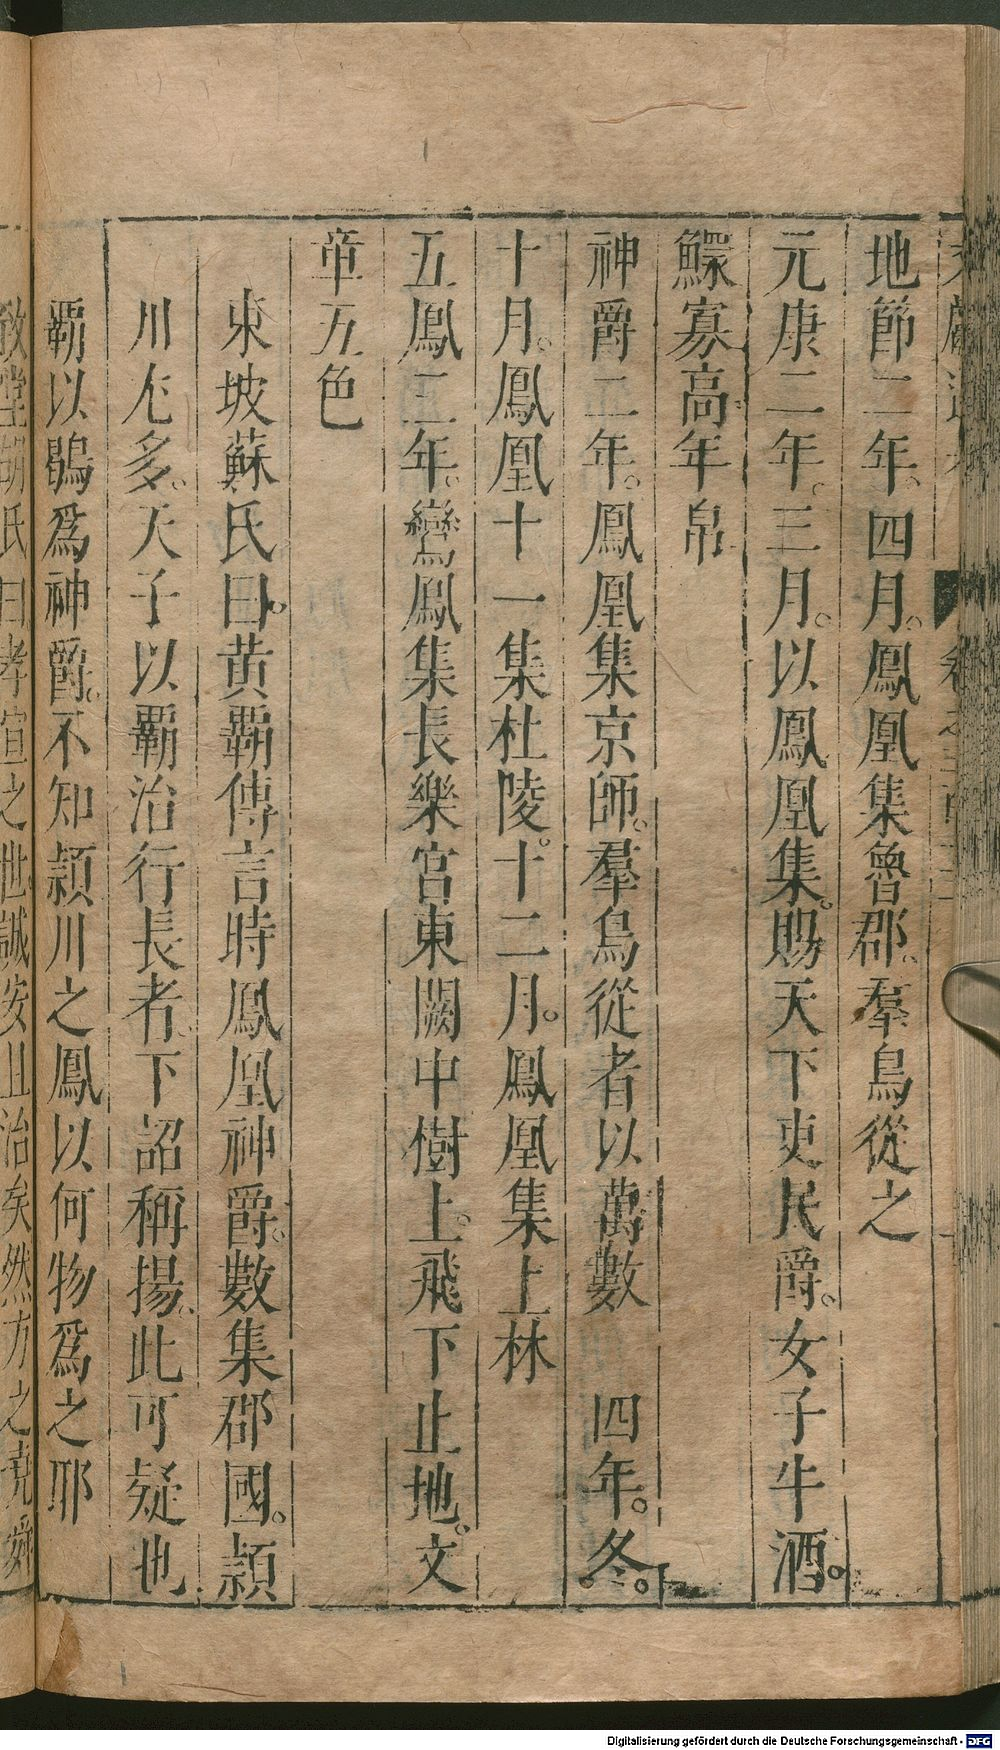 地節二年。四月。鳳凰集魯郡。羣鳥從之
元康二年。三月。以鳳凰集。賜天下吏民爵。女子牛酒。
鰥寡高年帛
神爵二年。鳳凰集京師。羣鳥從者以萬數　四年。冬。
十月。鳳凰十一集杜陵。十二月。鳳凰集上林
五鳳三年。鸞鳳集長樂宮東闕中樹上。飛下止地。文
章五色
東坡蘇氏曰。黃霸傳言時鳳凰神爵。數集郡國。潁
川尤多。天子以霸治行長者。下詔稱揚。此可疑也
霸以鶡爲神爵。不知潁川之鳳以何物爲之耶
致堂胡氏曰孝宣之世誠安且治矣然方之堯舜
Digitalisierung gefördert durch die Deutsche Forschungsgemeinschaft - DFG